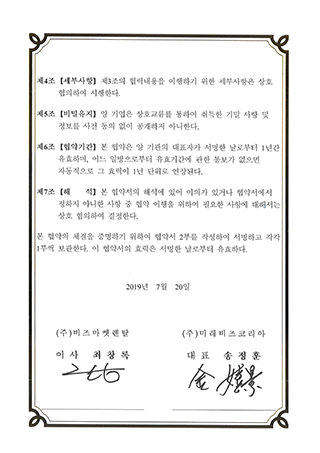 제4조 【세부사항】 제3조의 협력내용을 이행하기 위한 세부사항은 상호
협의하여 시행한다.
제5조 【비밀유지】 양 기업은 상호교류를 통하여 취득한 기밀 사항 및
정보를 사전 동의 없이 공개하지 아니한다.
제6조 【협약기간】 본 협약은 양 기관의 대표자가 서명한 날로부터 1년간
유효하며, 어느 일방으로부터 유효기간에 관한 통보가 없으면
자동적으로 그 효력이 1년 단위로 연장된다.
제7조 【해 석】 본 협약서의 해석에 있어 이의가 있거나 협약서에서
정하지 아니한 사항 중 협약 이행을 위하여 필요한 사항에 대해서는
상호 협의하여 결정한다.
본 협약의 체결을 증명하기 위하여 협약서 2부를 작성하여 서명하고 각각
1부씩 보관한다. 이 협약서의 효력은 서명한 날로부터 유효하다.
2019년 7월 20일
(주)비즈마켓렌탈
이사 최창록
(주)미래비즈코리아
대표 송정훈